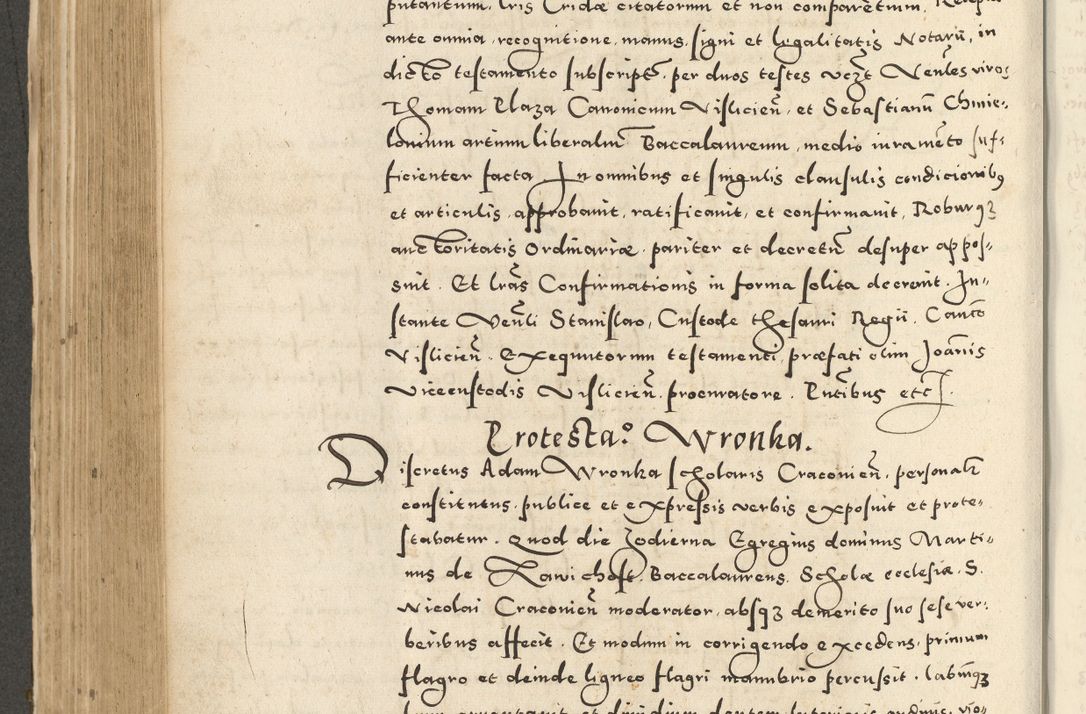 putantium, Cris Cridæ citatorum et non comparetium.
ante omnia, recognitione, manus, signi et legalitatis Notarii, in
dicto testamento subscript, per duos testes vczt Venles viros
Thomam Plaza Canonicum Vislicien, et Sebastianu Chmie-
lonium artium liberaliu Baccalaureum, medio iuramēto suf-
ficienter facta, In omnibus et singulis clausulis condicionibꝫ
et articulis, approbauit, ratificauit, et confirmauit, Roburqꝫ
auctoritatis Ordinariæ, pariter et decretū desuper appos-
suit. Et lras Confirmationis in forma solita decreuit. In-
stante Venli Stanislao, Custode thesauri Regii, Canco
Vislicien. Exequutorum testamenti, præfati olim Joānis
Vicecustodis Vislicien, procuratore. Pntibus etc
Protesta.º Wronka.
Discretus Adam Wronka scholaris Cracovien, personalr
constitutus, publice et expressis verbis exposuit et prote-
stabatur. Quod die hodierna Egregius dominus Marti-
nus de Zawichost, Baccalaureus, Scholæ ecclesiæ, S.
Nicolai Cracovien moderator, absqꝫ demerito suo sese ver-
beribus affecit. Et modum in corrigendo excedens, primum
flagro et deinde ligneo flagri manubrio percussit. labiūqꝫ
et dividium dentem